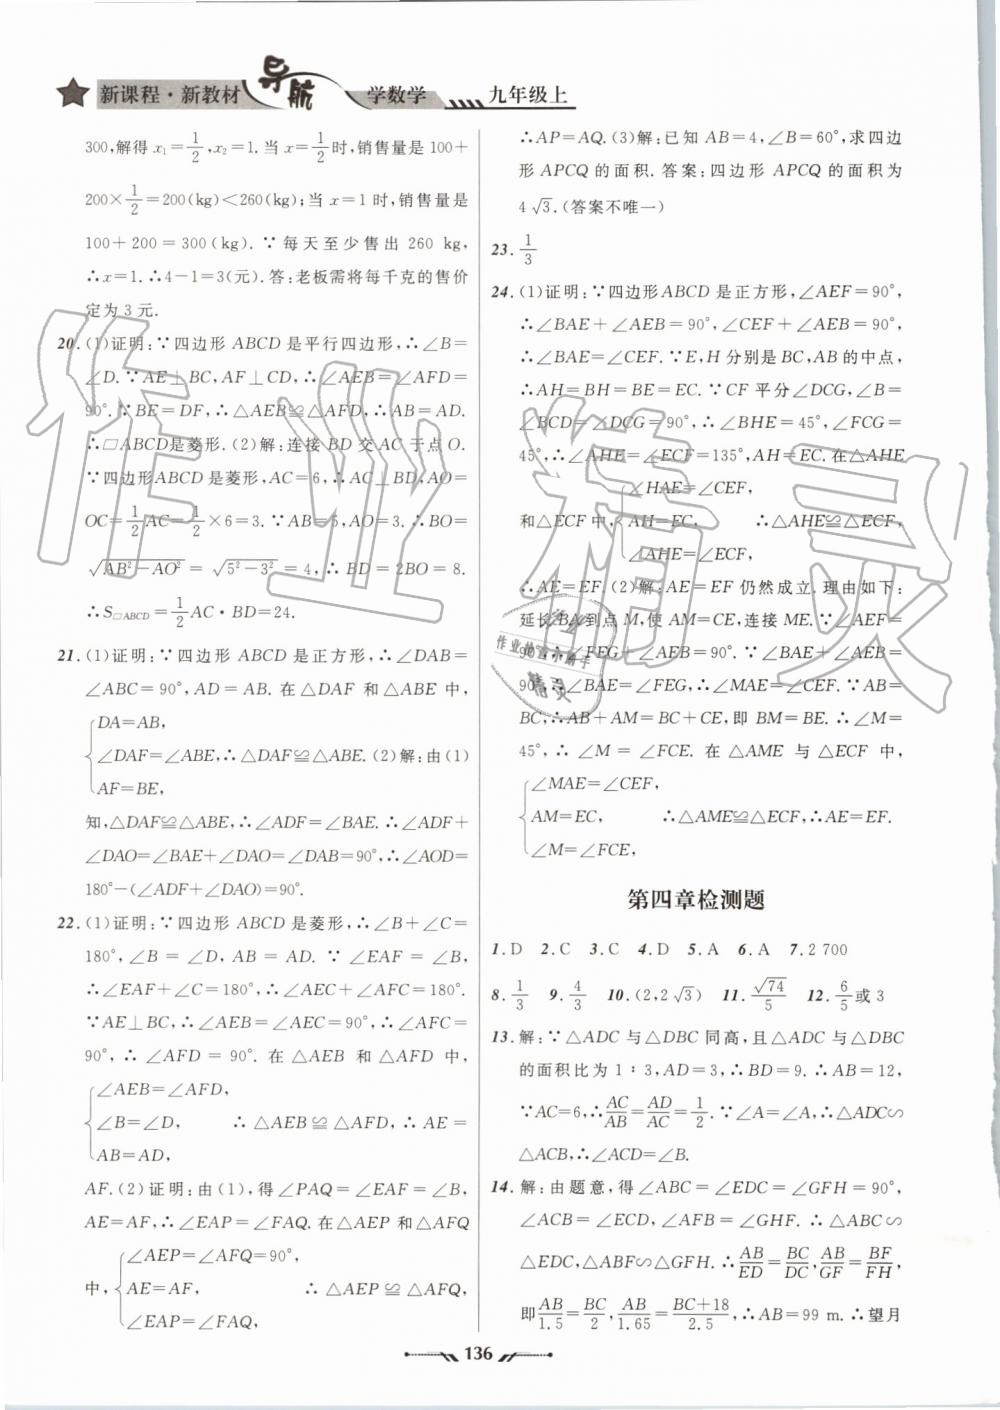 新课程·新教材 导航 学数学 九年级上
300,解得 x₁=1/2,x₂=1.当 x=1/2时,销售量是 100+
200×1/2=200(kg)<260(kg);当 x=1 时,销售量是
100+200=300(kg).∵每天至少售出 260 kg,
∴x=1.∴4-1=3(元).答:老板需将每千克的售价
定为 3 元.
20.(1)证明:∵四边形 ABCD 是平行四边形,∴∠B=
∠D.∵AE⊥BC,AF⊥CD,∴∠AEB=∠AFD=
90°.∵BE=DF,∴△AEB≌△AFD,∴AB=AD.
∴□ABCD是菱形.(2)解:连接 BD 交 AC 于点 O.
∵四边形ABCD是菱形,AC=6,∴AC⊥BD,AO=
OC=1/2AC=1/2×6=3.∵AB=5,AO=3.∴BO=
√(AB²-AO²) = √(5²-3²) = 4,∴BD=2BO=8.
∴S□ABCD=1/2AC·BD=24.
21.(1)证明:∵四边形 ABCD 是正方形,∴∠DAB=
∠ABC=90°,AD=AB.在△DAF 和△ABE 中,
{DA=AB,
∠DAF=∠ABE,∴△DAF≌△ABE.(2)解:由(1)
AF=BE,
知,△DAF≌△ABE,∴∠ADF=∠BAE.∴∠ADF+
∠DAO=∠BAE+∠DAO=∠DAB=90°,∴∠AOD=
180°-(∠ADF+∠DAO)=90°.
22.(1)证明:∵四边形 ABCD 是菱形,∴∠B+∠C=
180°,∠B=∠D,AB=AD.∵∠EAF=∠B,
∴∠EAF+∠C=180°,∴∠AEC+∠AFC=180°.
∵AE⊥BC,∴∠AEB=∠AEC=90°,∴∠AFC=
90°,∴∠AFD=90°.在△AEB 和△AFD 中,
{∠AEB=∠AFD,
∠B=∠D, ∴△AEB≌△AFD,∴AE=
AB=AD,
AF.(2)证明:由(1),得∠PAQ=∠EAF=∠B,
AE=AF,∴∠EAP=∠FAQ.在△AEP 和△AFQ
{∠AEP=∠AFQ=90°,
中, AE=AF, ∴△AEP≌△AFQ,
∠EAP=∠FAQ,
∴AP=AQ.(3)解:已知 AB=4,∠B=60°,求四边
形 APCQ 的面积.答案:四边形 APCQ 的面积为
4√3.(答案不唯一)
23.1/3
24.(1)证明:∵四边形ABCD 是正方形,∠AEF=90°,
∴∠BAE+∠AEB=90°,∠CEF+∠AEB=90°,
∴∠BAE=∠CEF.∵E,H 分别是 BC,AB 的中点,
∴AH=BH=BE=EC.∵CF 平分∠DCG,∠B=
∠BCD=∠DCG=90°,∴∠BHE=45°,∠FCG=
45°,∴∠AHE=∠ECF=135°,AH=EC.在△AHE
{∠HAE=∠CEF,
和△ECF 中, AH=EC, ∴△AHE≌△ECF,
∠AHE=∠ECF,
∴AE=EF.(2)解:AE=EF 仍然成立.理由如下:
延长 BA 到点 M,使 AM=CE,连接 ME.∵∠AEF=
90°,∴∠FEG+∠AEB=90°.∵∠BAE+∠AEB=
90°,∴∠BAE=∠FEG,∴∠MAE=∠CEF.∵AB=
BC,∴AB+AM=BC+CE,即 BM=BE.∴∠M=
45°,∴∠M=∠FCE.在△AME 与△ECF 中,
{∠MAE=∠CEF,
AM=EC, ∴△AME≌△ECF,∴AE=EF.
∠M=∠FCE,
第四章检测题
1.D 2.C 3.C 4.D 5.A 6.A 7.2 700
8.1/3 9.4/3 10.(2,2√3) 11.√74/5 12.6/5或3
13.解:∵△ADC 与△DBC 同高,且△ADC 与△DBC
的面积比为 1∶3,AD=3,∴BD=9.∴AB=12,
∵AC=6,∴AC/AB=AD/AC=1/2.∵∠A=∠A,∴△ADC∽
△ACB,∴∠ACD=∠B.
14.解:由题意,得∠ABC=∠EDC=∠GFH=90°,
∠ACB=∠ECD,∠AFB=∠GHF.∴△ABC∽
△EDC,△ABF∽△GFH.∴AB/ED=BC/DC,AB/GF=BF/FH,
即AB/1.5=BC/2,AB/1.65=BC+18/2.5,∴AB=99 m.∴望月
136
作业精灵